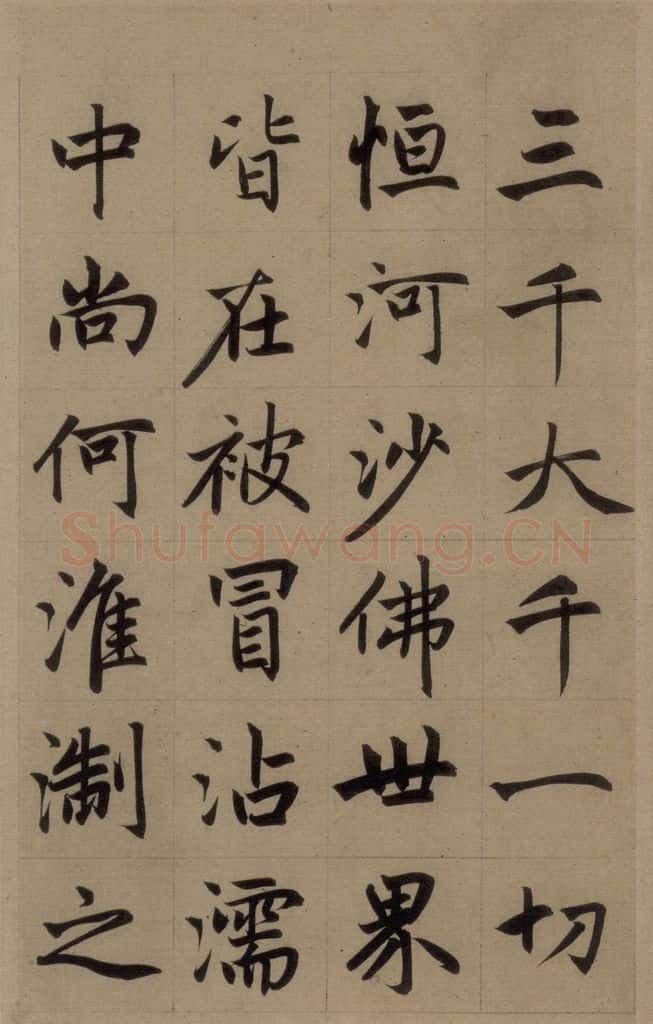 三千大千一切
恒河沙佛世界
皆在被冒沾濡
中尚何淮淛之
Shufawang.CN